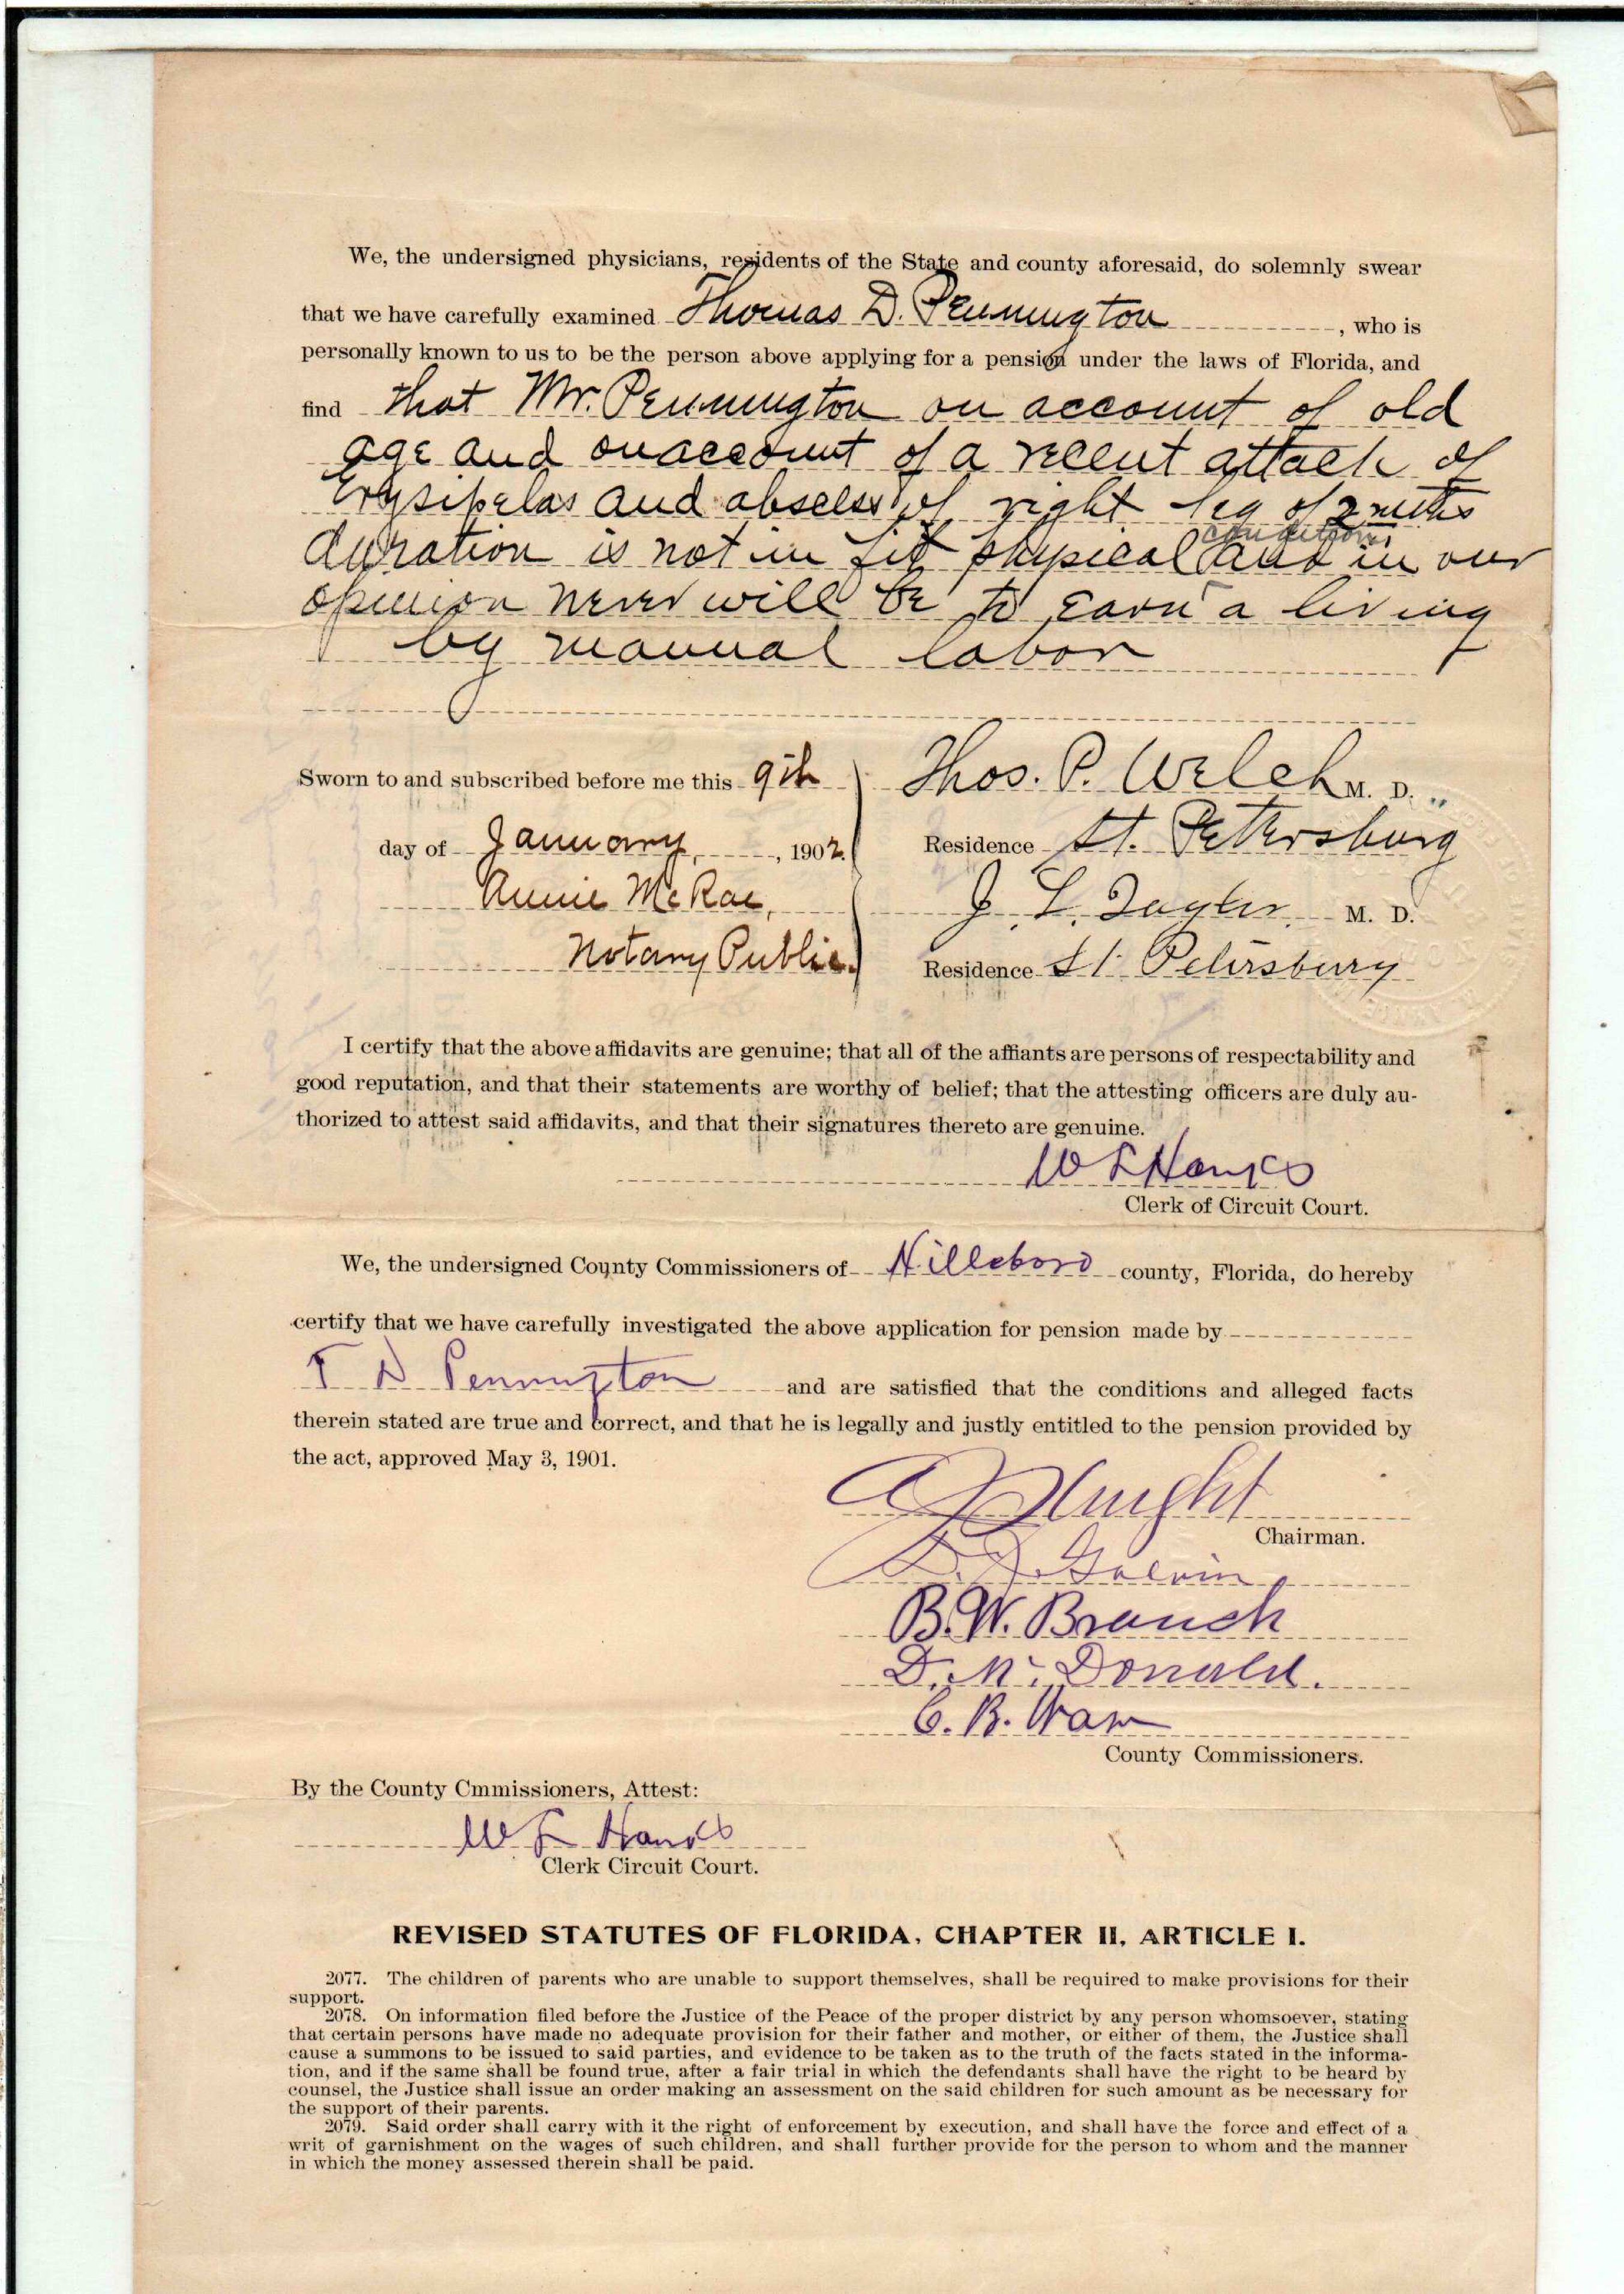 We, the undersigned physicians, residents of the State and county aforesaid, do solemnly swear
that we have carefully examined Thomas D. Pennington, who is
personally known to us to be the person above applying for a pension under the laws of Florida, and
find that Mr. Pennington on account of old
age and on account of a recent attack of
Erysipelas and abscess of right leg of 2 mths
condition
duration is not in fit physical and in our
opinion never will be to earn a living
by manual labor
Sworn to and subscribed before me this 9th
Thos. P. Welch M. D.
day of January, 1902.
Residence St. Petersburg
Annie McRae,
J. L. Taylor M. D.
Notary Public.
Residence St. Petersburg
I certify that the above affidavits are genuine; that all of the affiants are persons of respectability and
good reputation, and that their statements are worthy of belief; that the attesting officers are duly au-
thorized to attest said affidavits, and that their signatures thereto are genuine.
Clerk of Circuit Court.
We, the undersigned County Commissioners of Hillsboro county, Florida, do hereby
certify that we have carefully investigated the above application for pension made by
T D Pennington and are satisfied that the conditions and alleged facts
therein stated are true and correct, and that he is legally and justly entitled to the pension provided by
the act, approved May 3, 1901.
Chairman.
B. W. Branch
D. Mc. Donald.
County Commissioners.
By the County Cmmissioners, Attest:
Clerk Circuit Court.
REVISED STATUTES OF FLORIDA, CHAPTER II, ARTICLE I.
2077. The children of parents who are unable to support themselves, shall be required to make provisions for their
support.
2078. On information filed before the Justice of the Peace of the proper district by any person whomsoever, stating
that certain persons have made no adequate provision for their father and mother, or either of them, the Justice shall
cause a summons to be issued to said parties, and evidence to be taken as to the truth of the facts stated in the informa-
tion, and if the same shall be found true, after a fair trial in which the defendants shall have the right to be heard by
counsel, the Justice shall issue an order making an assessment on the said children for such amount as be necessary for
the support of their parents.
2079. Said order shall carry with it the right of enforcement by execution, and shall have the force and effect of a
writ of garnishment on the wages of such children, and shall further provide for the person to whom and the manner
in which the money assessed therein shall be paid.